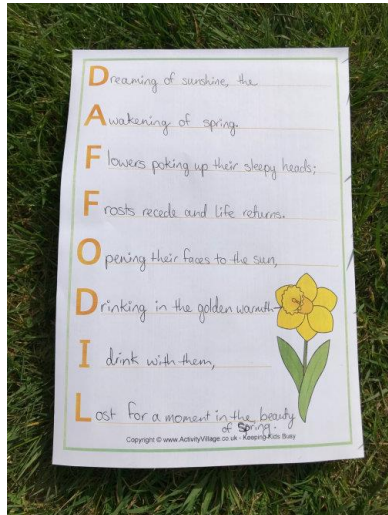 Dreaming of sunshine, the
Awakening of spring.
Flowers poking up their sleepy heads;
Frosts recede and life returns.
Opening their faces to the sun,
Drinking in the golden warmth
I drink with them,
Lost for a moment in the beauty
of spring.
Copyright © www.ActivityVillage.co.uk - Keeping Kids Busy